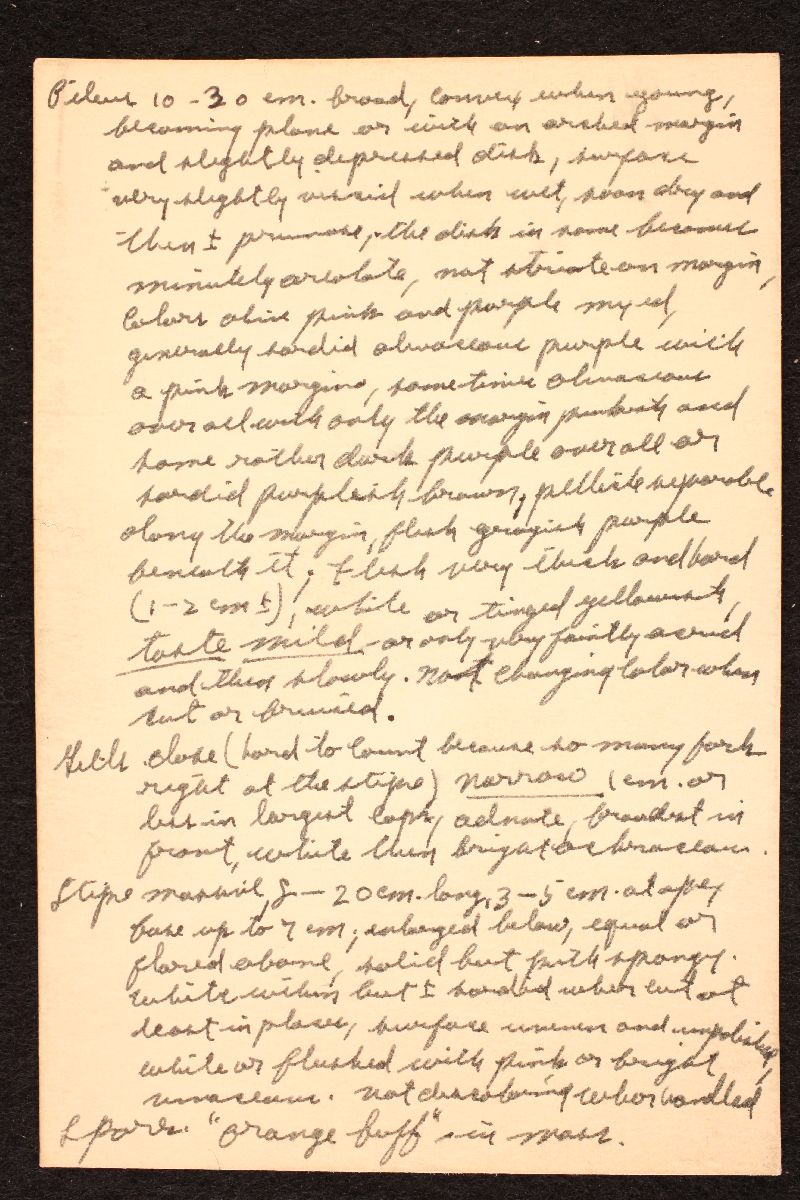 Pileus 10-30 cm. broad, convex when young,
becoming plane or with an arched margin
and slightly depressed disk, surface
very slightly viscid when wet, soon dry and
then ± pruinose, the disk in some becomes
minutely areolate, not striate on margin,
Colors olive pink and purple mixed,
generally sordid olivaceous purple with
a pink margin, sometimes olivaceous
over all with only the margin pinkish and
some rather dark purple over all or
sordid purplish brown, pellicle separable
along the margin, flesh grayish purple
beneath it; Flesh very thick and hard
(1-2 cm ±), white or tinged yellowish,
taste mild or only very faintly acrid
and then slowly. Not changing color when
cut or bruised.
Gills close (hard to count because so many fork
right at the stipe) narrow 1 cm. or
less in largest caps, adnate, broadest in
front, white then bright ochraceous.
Stipe massive, 8-20 cm. long, 3-5 cm. at apex
base up to 7 cm; enlarged below, equal or
flared above, solid but pith spongy.
white within but ± sordid when cut at
least in places, surface uneven and unpolished,
white or flushed with pink or bright
vinaceous. not discoloring when handled
Spores. "orange buff" in mass.